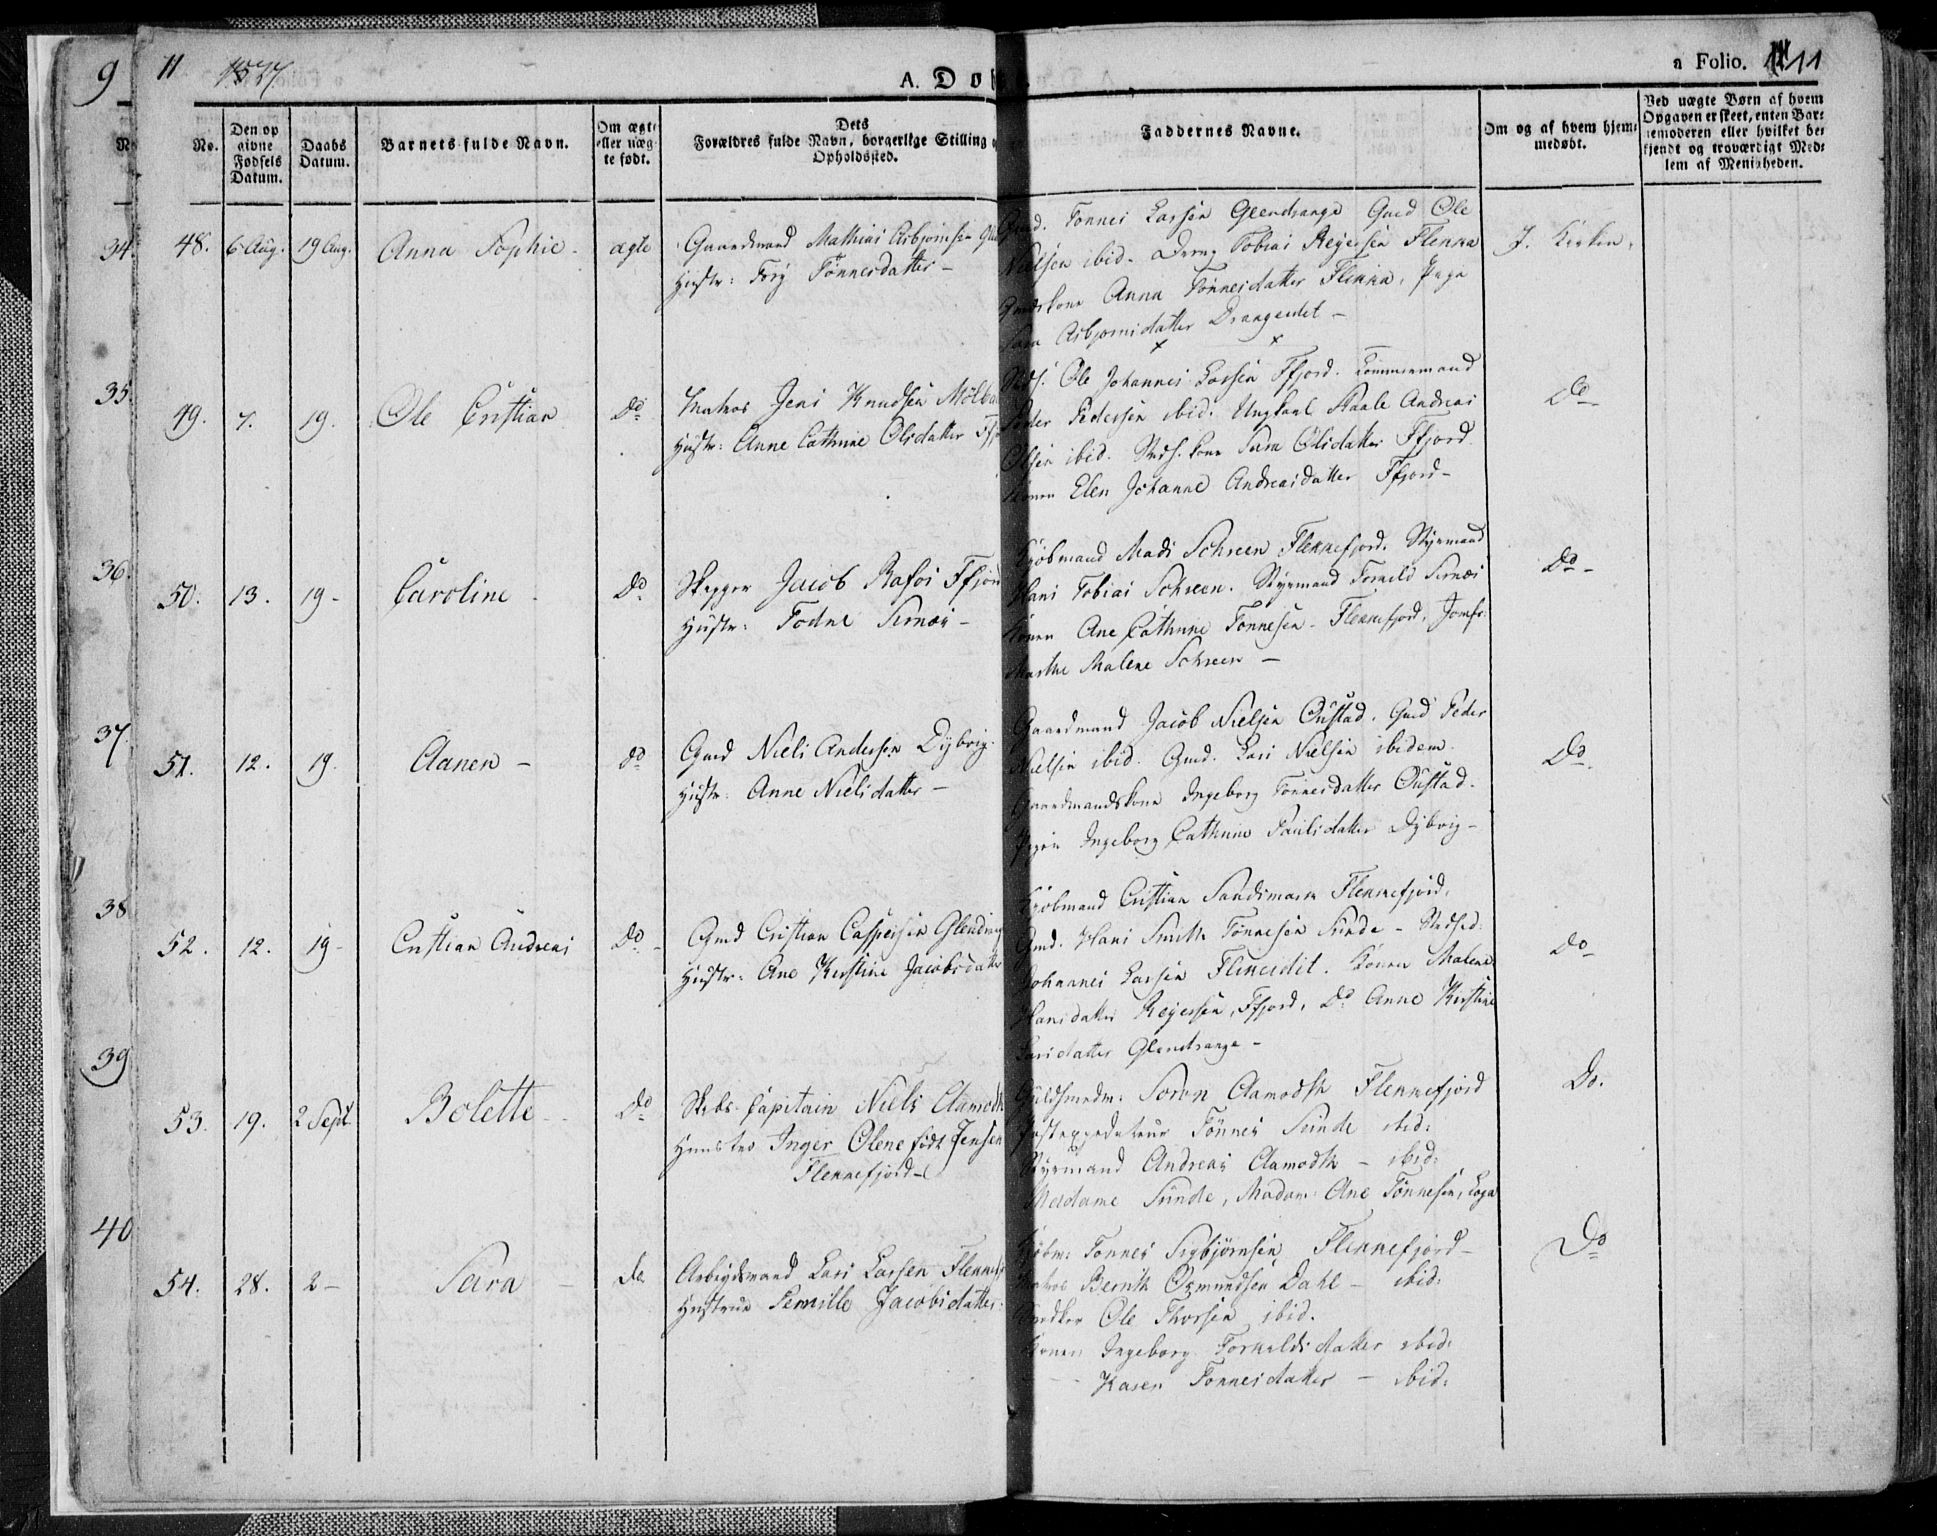 9
11
1827.
A. Do
a Folio. 11
No.
Den op
givne
Fødsels
Datum.
Daabs
Datum.
Barnets fulde Navn.
Om ægte
eller uæg
te født.
Dets
Forældres fulde Navn, borgerlige Stilling
Opholdssted.
Faddernes Navne.
Om og af hvem hjem:
medøbt.
Ved uægte Børn af hvem
Opgaven er skeet, enten Bar:
nemoderen eller hvilket be:
kjendt og troværdigt Med:
lem af Menigheden.
34.
35.
36.
37
38
39
40
48. 6 Aug. 19 Aug. Anna Sophie - ægte
Gaardmand Mathias Asbjørnsen
Hustr: Tørj Tønnesdatter -
Tønnes Larsen Glendrange Gmd Ole
Nielsen ibid. Dreng Tobias Reyersen Flenna
Anna Tønnesdatter Flenna, Pige
Asbjørnsdatter Drangeidet -
I. Kirken.
49. 7. 19. Ole Cristian Do
Matros Jens Knudsen Mølba
Hustr: Anne Cathrine Olsdatter Ffjo
Ole Johannes Larsen Ffjord. Tømmermand
Peder Pedersen ibid. Ungkarl Staale Andreas
Olsen ibid. Kone Sara Olsdatter Ffjord
Konen Elen Johanne Andreasdatter Ffjord -
Do -
50. 13. 19 - Caroline - Do
Skipper Jacob Rafos Ffjord
Hustr: Todne Sirnæs -
Kjøbmand Mads Schreen Flekkefjord. Styrmand
Hans Tobias Schreen. Styrmand Torkild Sirnæs
Konen Ane Cathrine Tønnesen - Flekkefjord, Jomfr:
Marthe Malene Schreen -
Do -
51. 12. 19. Aanen - do
Gmd Niels Andersen Dybvig.
Hustr. Anne Nielsdatter -
Gaardmand Jacob Nielsen Oustad. Gmd Peder
Nielsen ibid. Gmd. Lars Nielsen ibidem.
Gaardmandskone Ingeborg Tønnesdatter Oustad.
Pigen Ingeborg Cathrine Paulsdatter Dybvig -
Do.
52. 12. 19 - Cristian Andreas Do -
Gmd Cristian Caspersen Glendrag
Hustr: Ane Kirstine Jacobsdatter
Kjøbmand Cristian Sandsmark Flekkefjord.
Gmd. Hans Smith Tønnesen Sunde -
Johannes Larsen Flikeidet. Konen Malene
Hansdatter Reyersen, Ffjord, Do Anne Kirstine
Larsdatter Glendrange -
Do -
53. 19. 2 Sept. Bolette - Do
Skibs-Capitain Niels Aamodt
Huustro Inger Olene født Jensen
Flekkefjord -
Guldsmedm: Soren Aamodth Flekkefjord
Postexpediteur Tønnes Sunde ibid:
Styrmand Andreas Aamodth - ibid:
Madame Sunde, Madam Ane Tønnesen, Loga
Do.
54. 28. 2 - Sara - do
Arbeidsmand Lars Larsen Flekkef
Hustrue Pernille Jacobsdatter.
Kjøbm: Tønnes Sigbjørnsen Flekkefjord -
Bernth Osmundsen Dahl - ibid:
Ole Thorsen ibid.
Konen Ingeborg Torkildsdatter ibid:
- - Karen Tønnesdatter - ibid:
Do